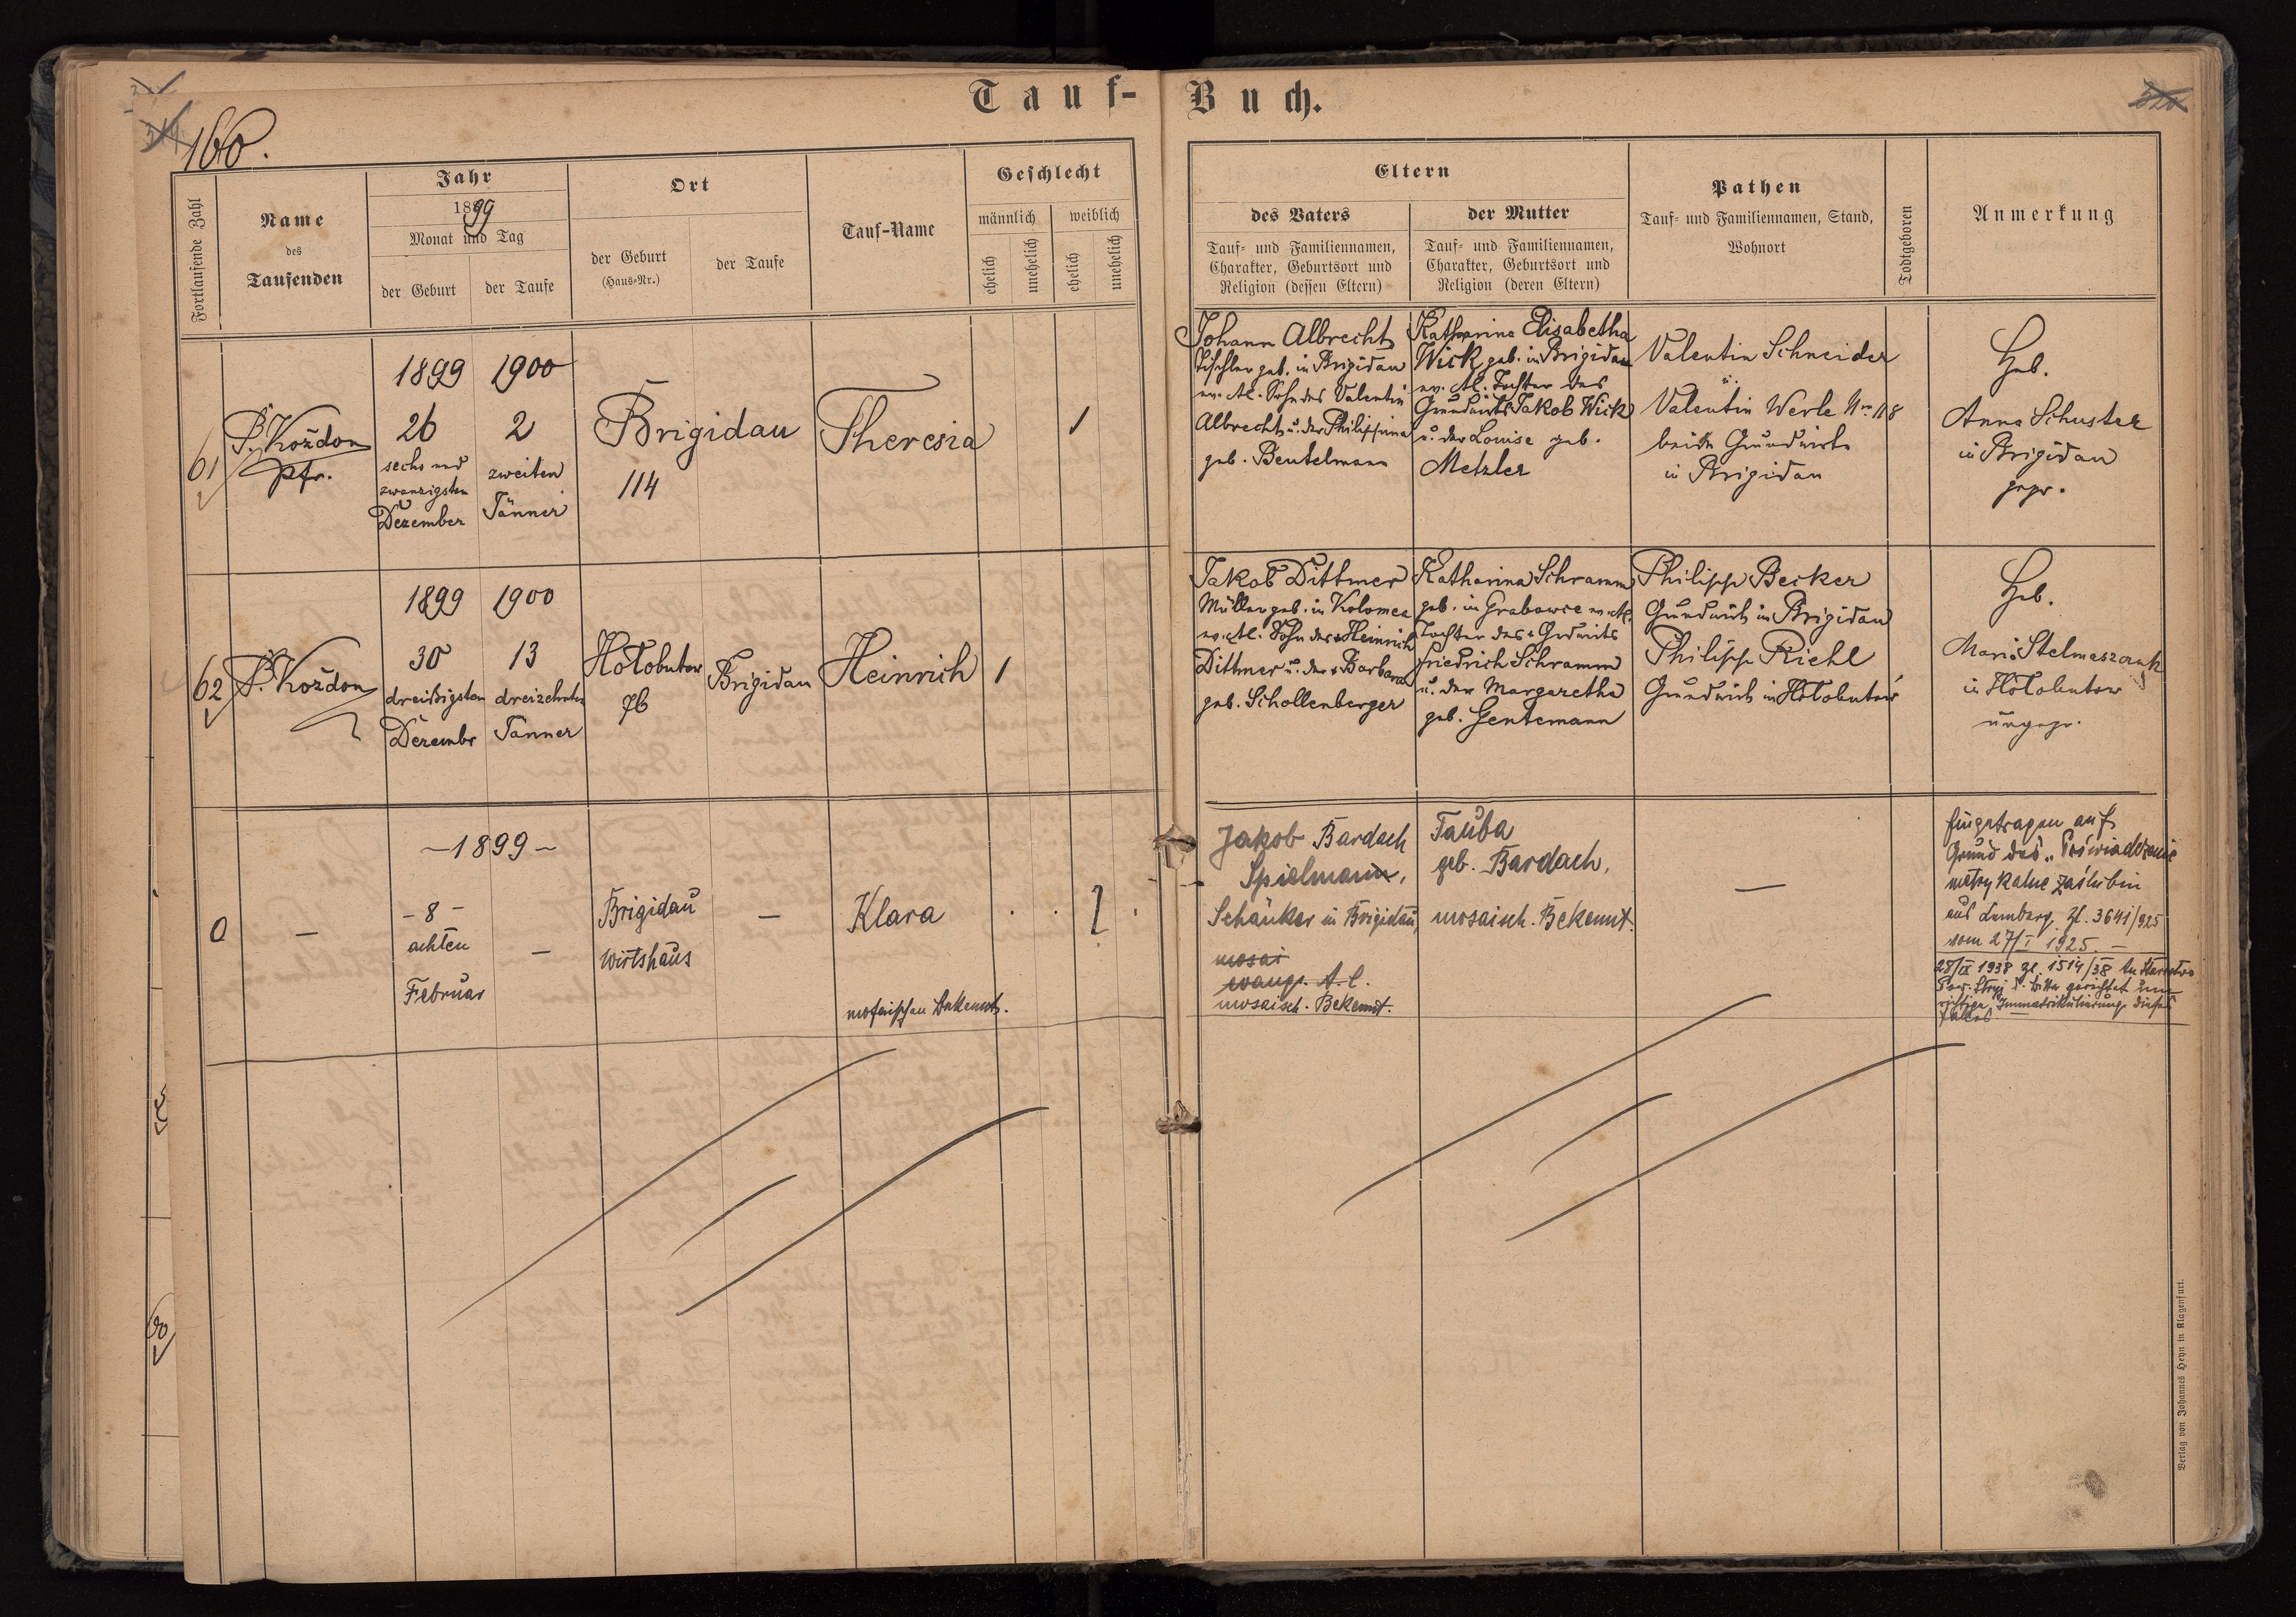 Tauf-Buch.
160.
Fortlaufende Zahl
Name
des
Taufenden
Jahr
1899
Monat und Tag
der Geburt
der Taufe
Ort
der Geburt
(Haus-Nr.)
der Taufe
Tauf-Name
Geschlecht
männlich
weiblich
ehelich
unehelich
ehelich
unehelich
Eltern
des Vaters
Tauf- und Familiennamen,
Charakter, Geburtsort und
Religion (dessen Eltern)
der Mutter
Tauf- und Familiennamen,
Charakter, Geburtsort und
Religion (deren Eltern)
Pathen
Tauf- und Familiennamen, Stand,
Wohnort
Todtgeboren
Anmerkung
61
P. Koždon
Pfr.
1899
26
sechs und
zwanzigsten
Dezember
1900
2
zweiten
Jänner
Brigidau
114
Theresia
1
Johann Albrecht
Tischler geb. in Brigidau
ev. AC. Sohn des Valentin
Albrecht u. der Philippina
geb. Beutelmann
Katharina Elisabetha
Wick geb. in Brigidau
ev. AC. Tochter des
Grundwirts Jakob Wick
u. der Louise geb.
Metzler
Valentin Schneider
u.
Valentin Werle Nr. 118
beide Grundwirte
in Brigidau
Heb.
Anna Schuster
in Brigidau
gepr.
62
P. Koždon
1899
30
dreißigsten
Dezembr
1900
13
dreizehnten
Jänner
Hołobutow
76
Brigidau
Heinrich
1
Jakob Dittmer
Müller geb. in Kolomea
ev. AC. Sohn des + Heinrich
Dittmer u. der + Barbara
geb. Schollenberger
Katharina Schramm
geb. in Grabowce ev. AC.
Tochter des + Grdwirts
Friedrich Schramm
u. der Margaretha
geb. Gentemann
Philipp Becker
Grundwirt in Brigidau
Philipp Riehl
Grundwirt in Hołobutow
Heb.
Maria Stelmaszczuk
in Hołobutow
ungepr.
0
–
–1899–
–8–
achten
Februar
–
Brigidau
Wirtshaus
–
Klara
mosaischen Bekennt.
1
Jakob Bardach
Spielmann,
Schänker in Brigidau,
mosai
evang. A.C.
mosaisch. Bekennt.
Tauba
geb. Bardach,
mosaisch. Bekennt.
–
Eingetragen auf
Grund des "Poświadczenie
metrykalne zaślubin
aus Lemberg. Zl. 3641/925
vom 27/I 1925. –
28/IX 1938 Zl. 1514/38 An Starostwo
Pow. Stryj d. Bitte gerichtet um
richtige Immatrikulierung dieses
Falles
Verlag von Johannes Heyn in Klagenfurt.